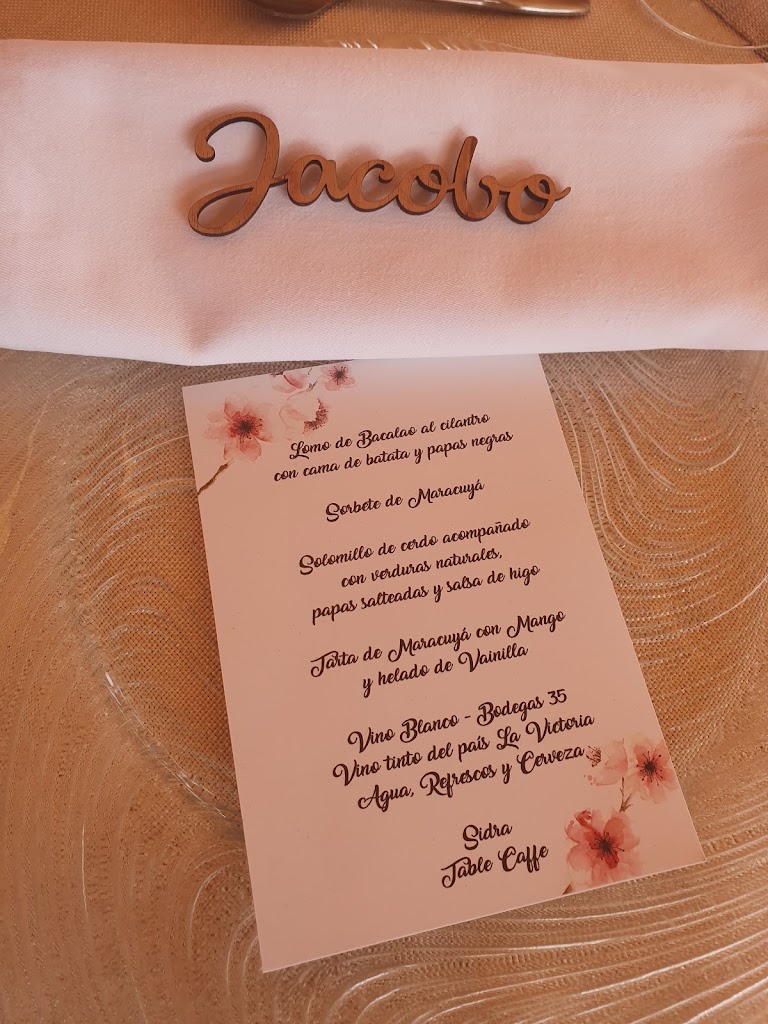 Jacobo
Lomo de Bacalao al cilantro
con cama de batata y papas negras
Sorbete de Maracuyá
Solomillo de cerdo acompañado
con verduras naturales,
papas salteadas y salsa de higo
Tarta de Maracuyá con Mango
y helado de Vainilla
Vino Blanco - Bodegas 35
Vino tinto del país La Victoria
Agua, Refrescos y Cerveza
Sidra
Table Caffe